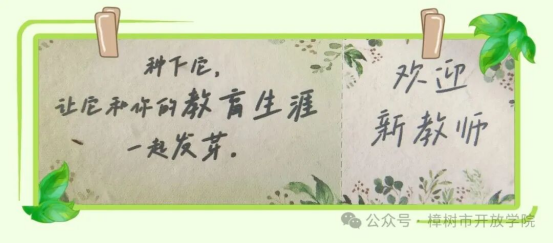 种下它,
让它和你的教育生涯
一起发芽。
欢迎
新教师
公众号·樟树市开放学院